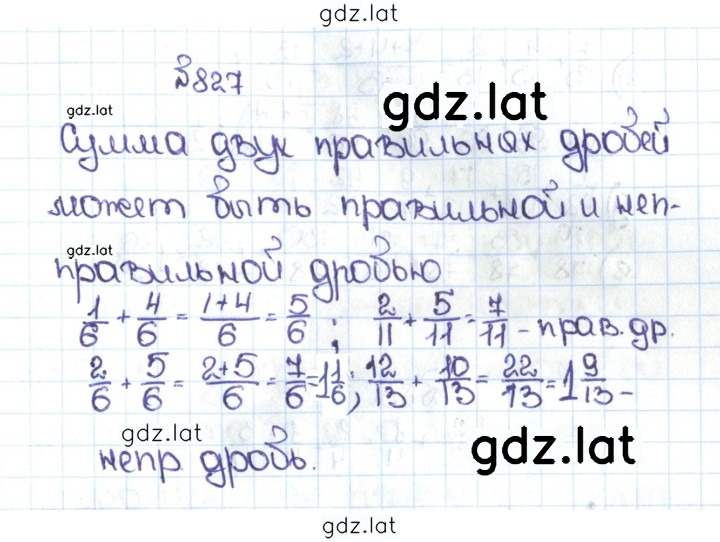 gdz.lat
№827
gdz.lat
gdz.lat
Сумма двух правильных дробей
может быть правильной и неп-
gdz.lat
правильной дробью
1/6 + 4/6 = 1+4/6 = 5/6 ; 2/11 + 5/11 = 7/11 - прав. др.
2/6 + 5/6 = 2+5/6 = 7/6 = 1 1/6 ; 12/13 + 10/13 = 22/13 = 1 9/13 -
gdz.lat
gdz.lat
непр дробь.
gdz.lat